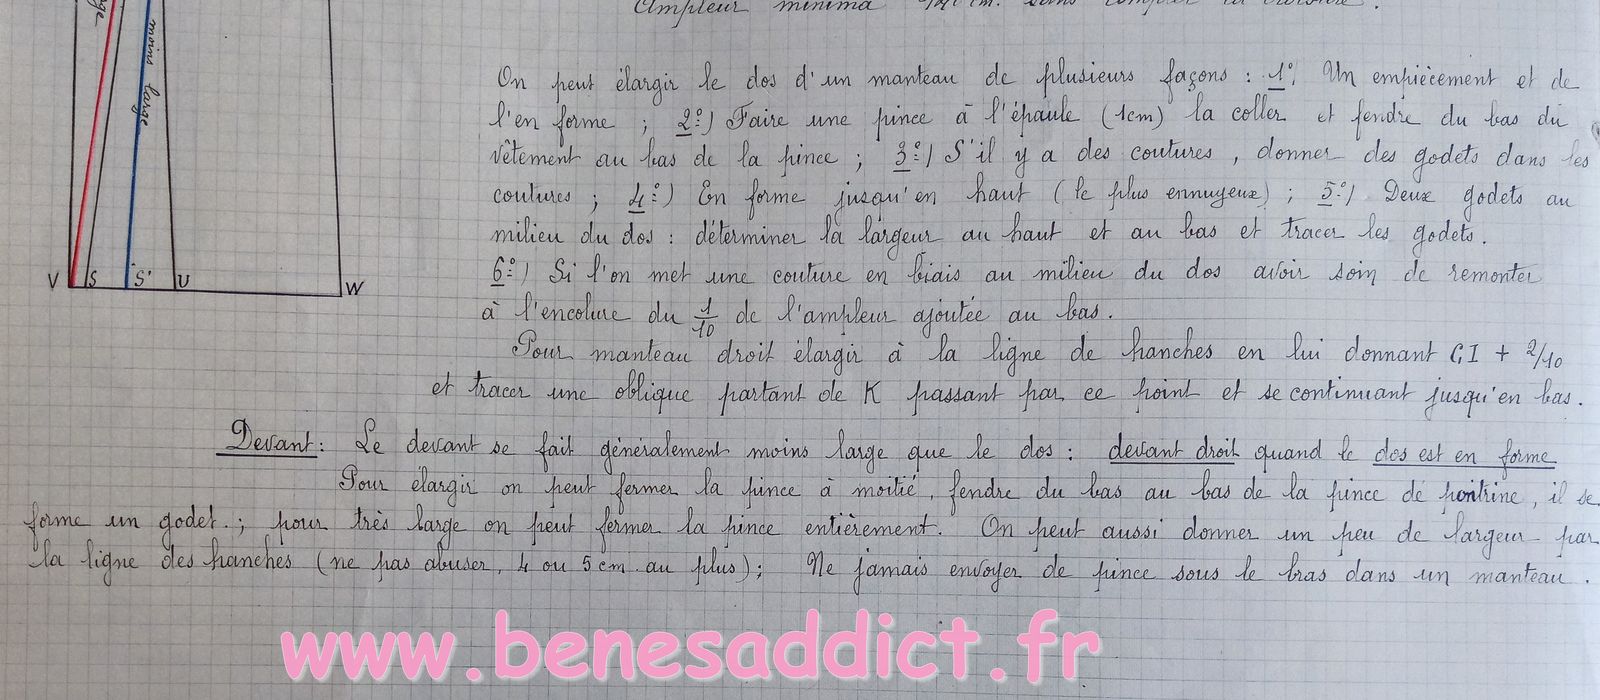 Ampleur minima
moins large
On peut élargir le dos d'un manteau de plusieurs façons : 1°/ Un empiècement et de
l'en forme ; 2°) Faire une pince à l'épaule (1cm) la coller et fendre du bas du
vêtement au bas de la pince ; 3°/ S'il y a des coutures, donner des godets dans les
coutures ; 4°) En forme jusqu'en haut (le plus ennuyeux) ; 5°/ Deux godets au
milieu du dos : déterminer la largeur au haut et au bas et tracer les godets.
V S S' U W
6°) Si l'on met une couture en biais au milieu du dos avoir soin de remonter
à l'encolure du 1/10 de l'ampleur ajoutée au bas.
Pour manteau droit élargir à la ligne de hanches en lui donnant GI + 2/10
et tracer une oblique partant de K passant par ce point et se continuant jusqu'en bas.
Devant : Le devant se fait généralement moins large que le dos : devant droit quand le dos est en forme
Pour élargir on peut fermer la pince à moitié, fendre du bas au bas de la pince de poitrine, il se
forme un godet. ; pour très large on peut fermer la pince entièrement. On peut aussi donner un peu de largeur par
la ligne des hanches (ne pas abuser, 4 ou 5 cm au plus) ; Ne jamais envoyer de pince sous le bras dans un manteau.
www.benesaddict.fr